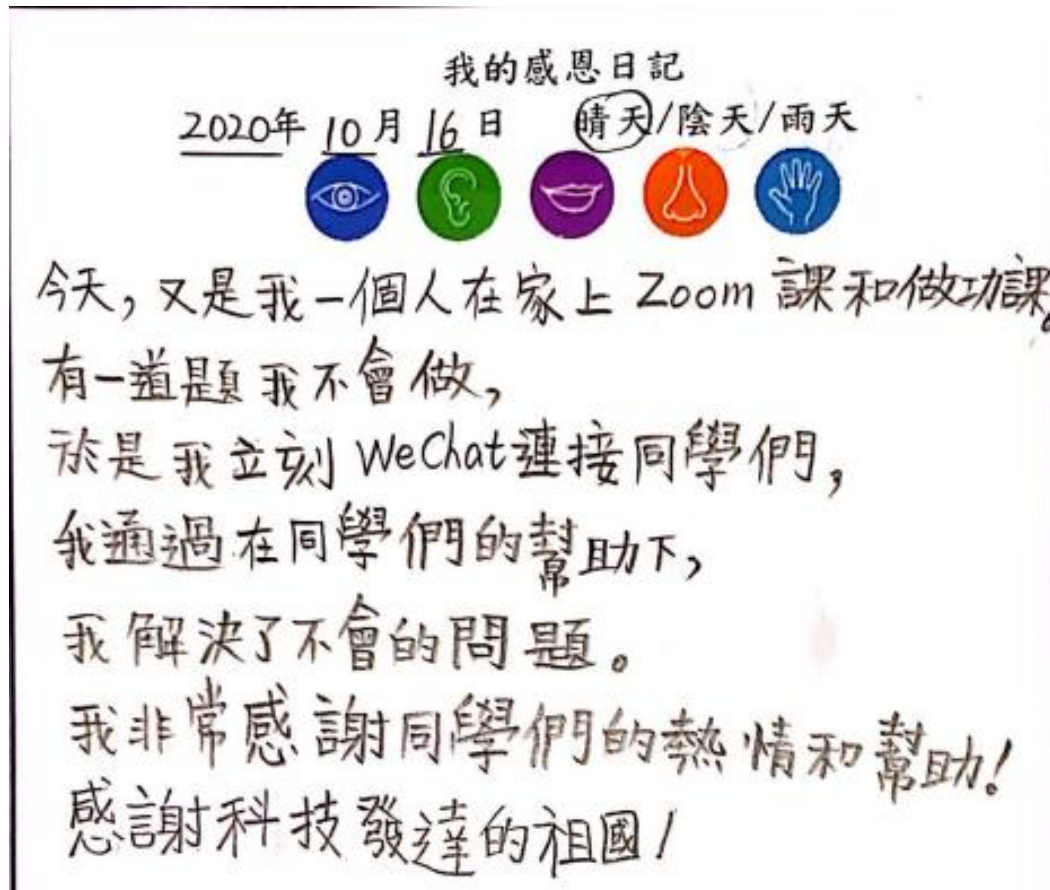 我的感恩日記
2020年 10 月 16 日 晴天/陰天/雨天
今天，又是我一個人在家上 Zoom 課和做功課。
有一道題我不會做，
於是我立刻 WeChat連接同學們，
我通過在同學們的幫助下，
我解決了不會的問題。
我非常感謝同學們的熱情和幫助！
感謝科技發達的祖國！